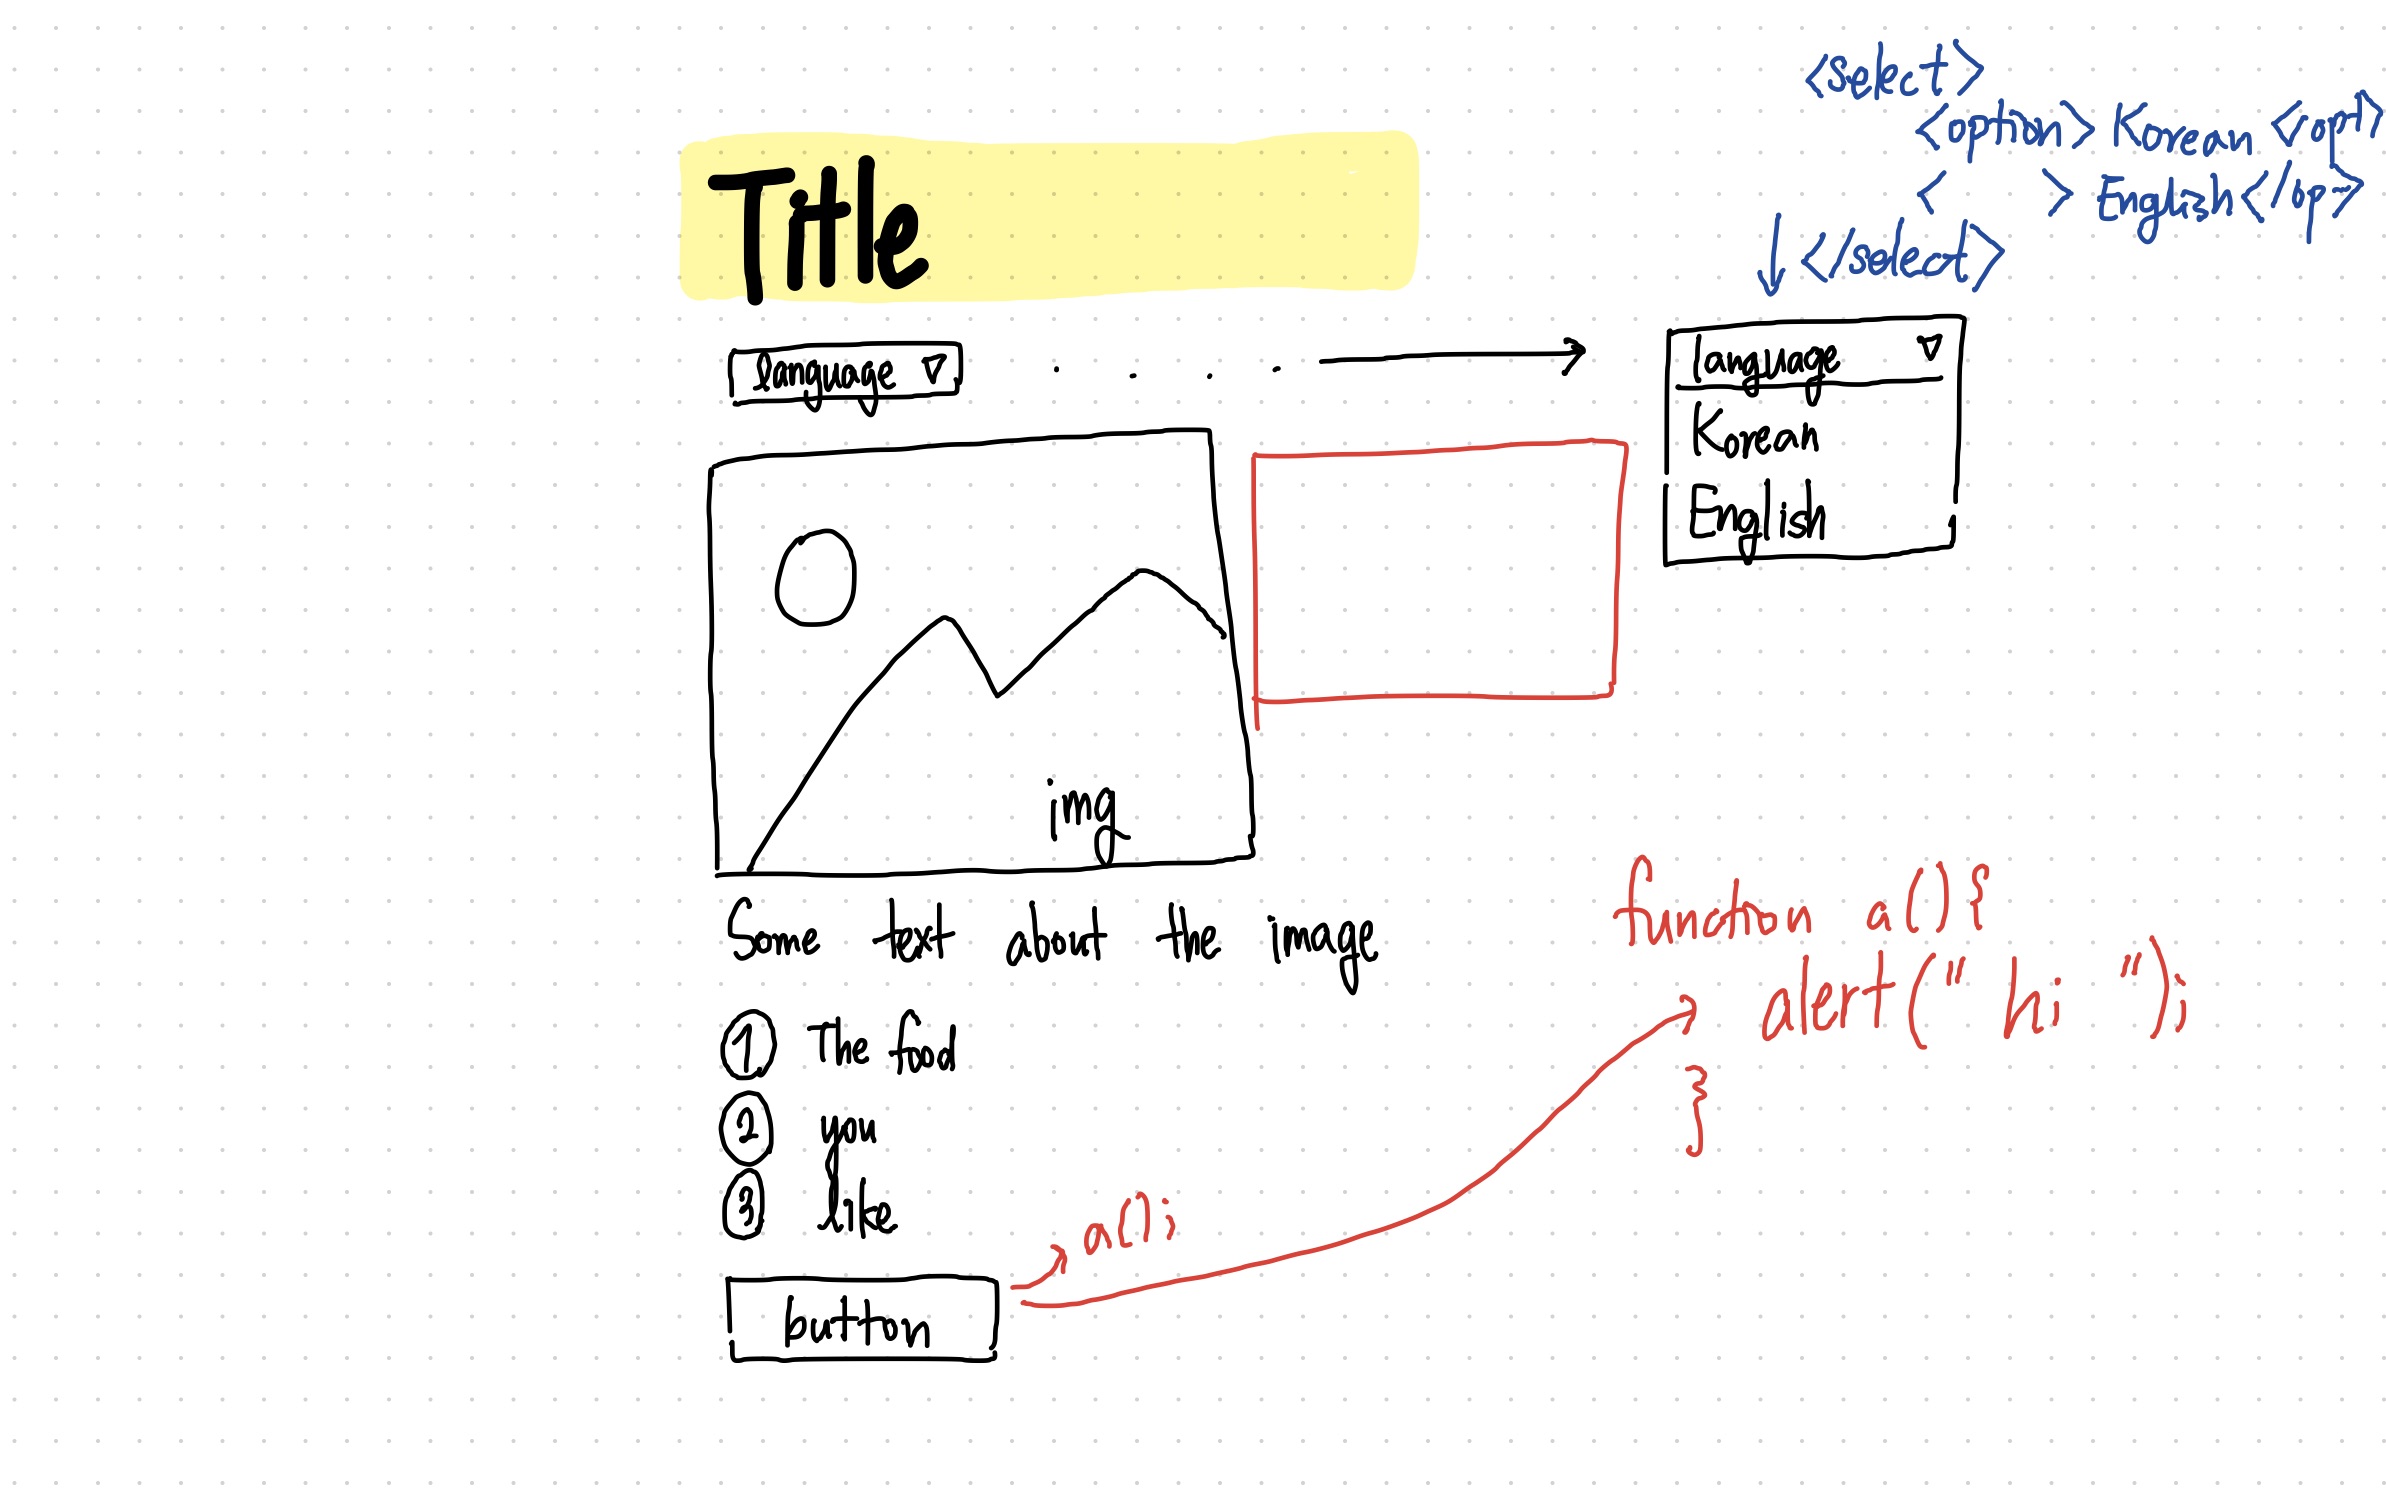 Title
language ▽
<select>
<option> Korean </opt>
< > English </op>
</select>
language ▽
Korean
English
img
Some text about the image
① The food
② you
③ like
button
a();
function a(){
alert(" hi ");
}